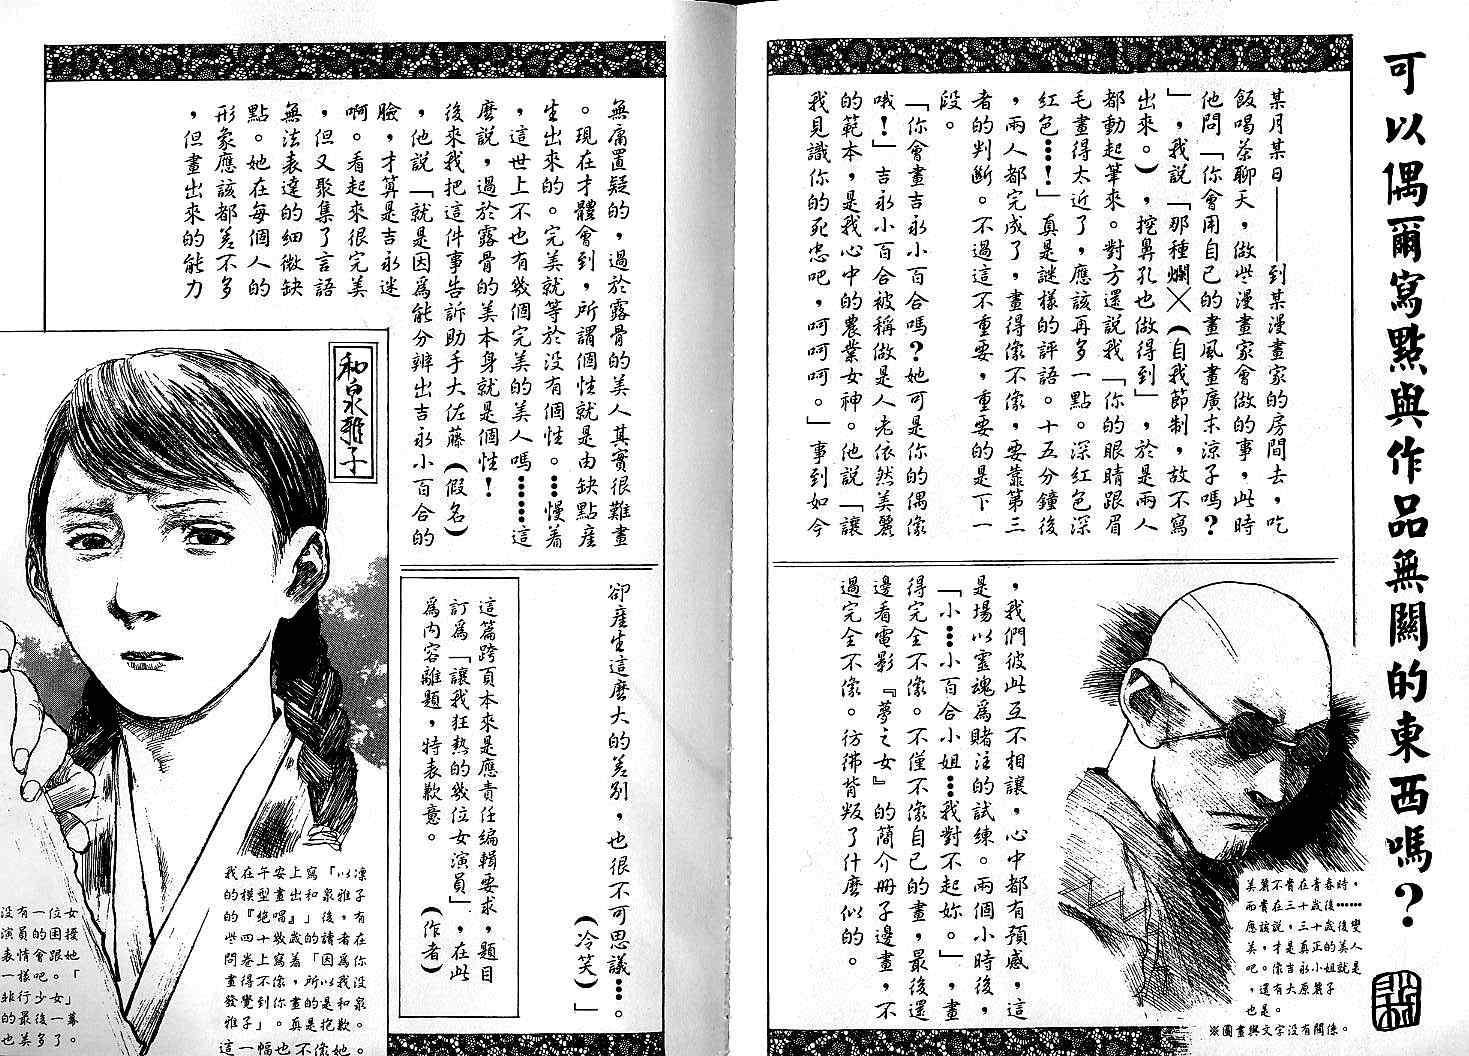 可以偶爾寫點與作品無關的東西嗎？
某月某日——到某漫畫家的房間去，吃
飯喝茶聊天，做些漫畫家會做的事，此時
他問「你會用自己的畫風畫廣末涼子嗎？
」，我說「那種爛╳（自我節制，故不寫
出來。），挖鼻孔也做得到」，於是兩人
都動起筆來。對方還說我「你的眼睛跟眉
毛畫得太近了，應該再多一點。深紅色深
紅色…！」真是謎樣的評語。十五分鐘後
，兩人都完成了，畫得像不像，要靠第三
者的判斷。不過這不重要，重要的是下一
段。
「你會畫吉永小百合嗎？她可是你的偶像
哦！」吉永小百合被稱做是人老依然美麗
的範本，是我心中的農業女神。他說「讓
我見識你的死忠吧，呵呵呵。」事到如今
，我們彼此互不相讓，心中都有預感，這
是場以靈魂為賭注的試練。兩個小時後，
「小…小百合小姐…我對不起妳。」，畫
得完全不像。不僅不像自己的畫，最後還
邊看電影『夢之女』的簡介冊子邊畫，不
過完全不像。彷彿背叛了什麼似的。
美麗不貴在青春時，
而貴在三十歲後……
應該說，三十歲後變
美，才是真正的美人
吧。像吉永小姐就是
，還有大原麗子
也是。
※圖畫與文字沒有關係。
無庸置疑的，過於露骨的美人其實很難畫
。現在才體會到，所謂個性就是由缺點產
生出來的。完美就等於沒有個性。…慢著
，這世上不也有幾個完美的美人嗎……這
麼說，過於露骨的美本身就是個性！
後來我把這件事告訴助手大佐藤（假名）
，他說「就是因為能分辨出吉永小百合的
臉，才算是吉永迷
啊。看起來很完美
，但又聚集了言語
無法表達的細微缺
點。她在每個人的
形象應該都差不多
，但畫出來的能力
卻產生這麼大的差別，也很不可思議…。
（冷笑）」
這篇跨頁本來是應責任編輯要求，題目
訂為「讓我狂熱的幾位女演員」，在此
為內容離題，特表歉意。
（作者）
和泉雅子
我在午安上寫「以凜
的模型畫出和泉雅子
的『絕唱』」後，有
些四十幾歲的讀者在
問卷上寫著「因為你
畫得不像，所以我沒
發覺到你畫的是和泉
雅子」。真是抱歉。
這一幅也不像她。
沒有一位女
演員的困擾
表情會跟她
一樣吧。「
非行少女」
的最後一幕
也美多了。